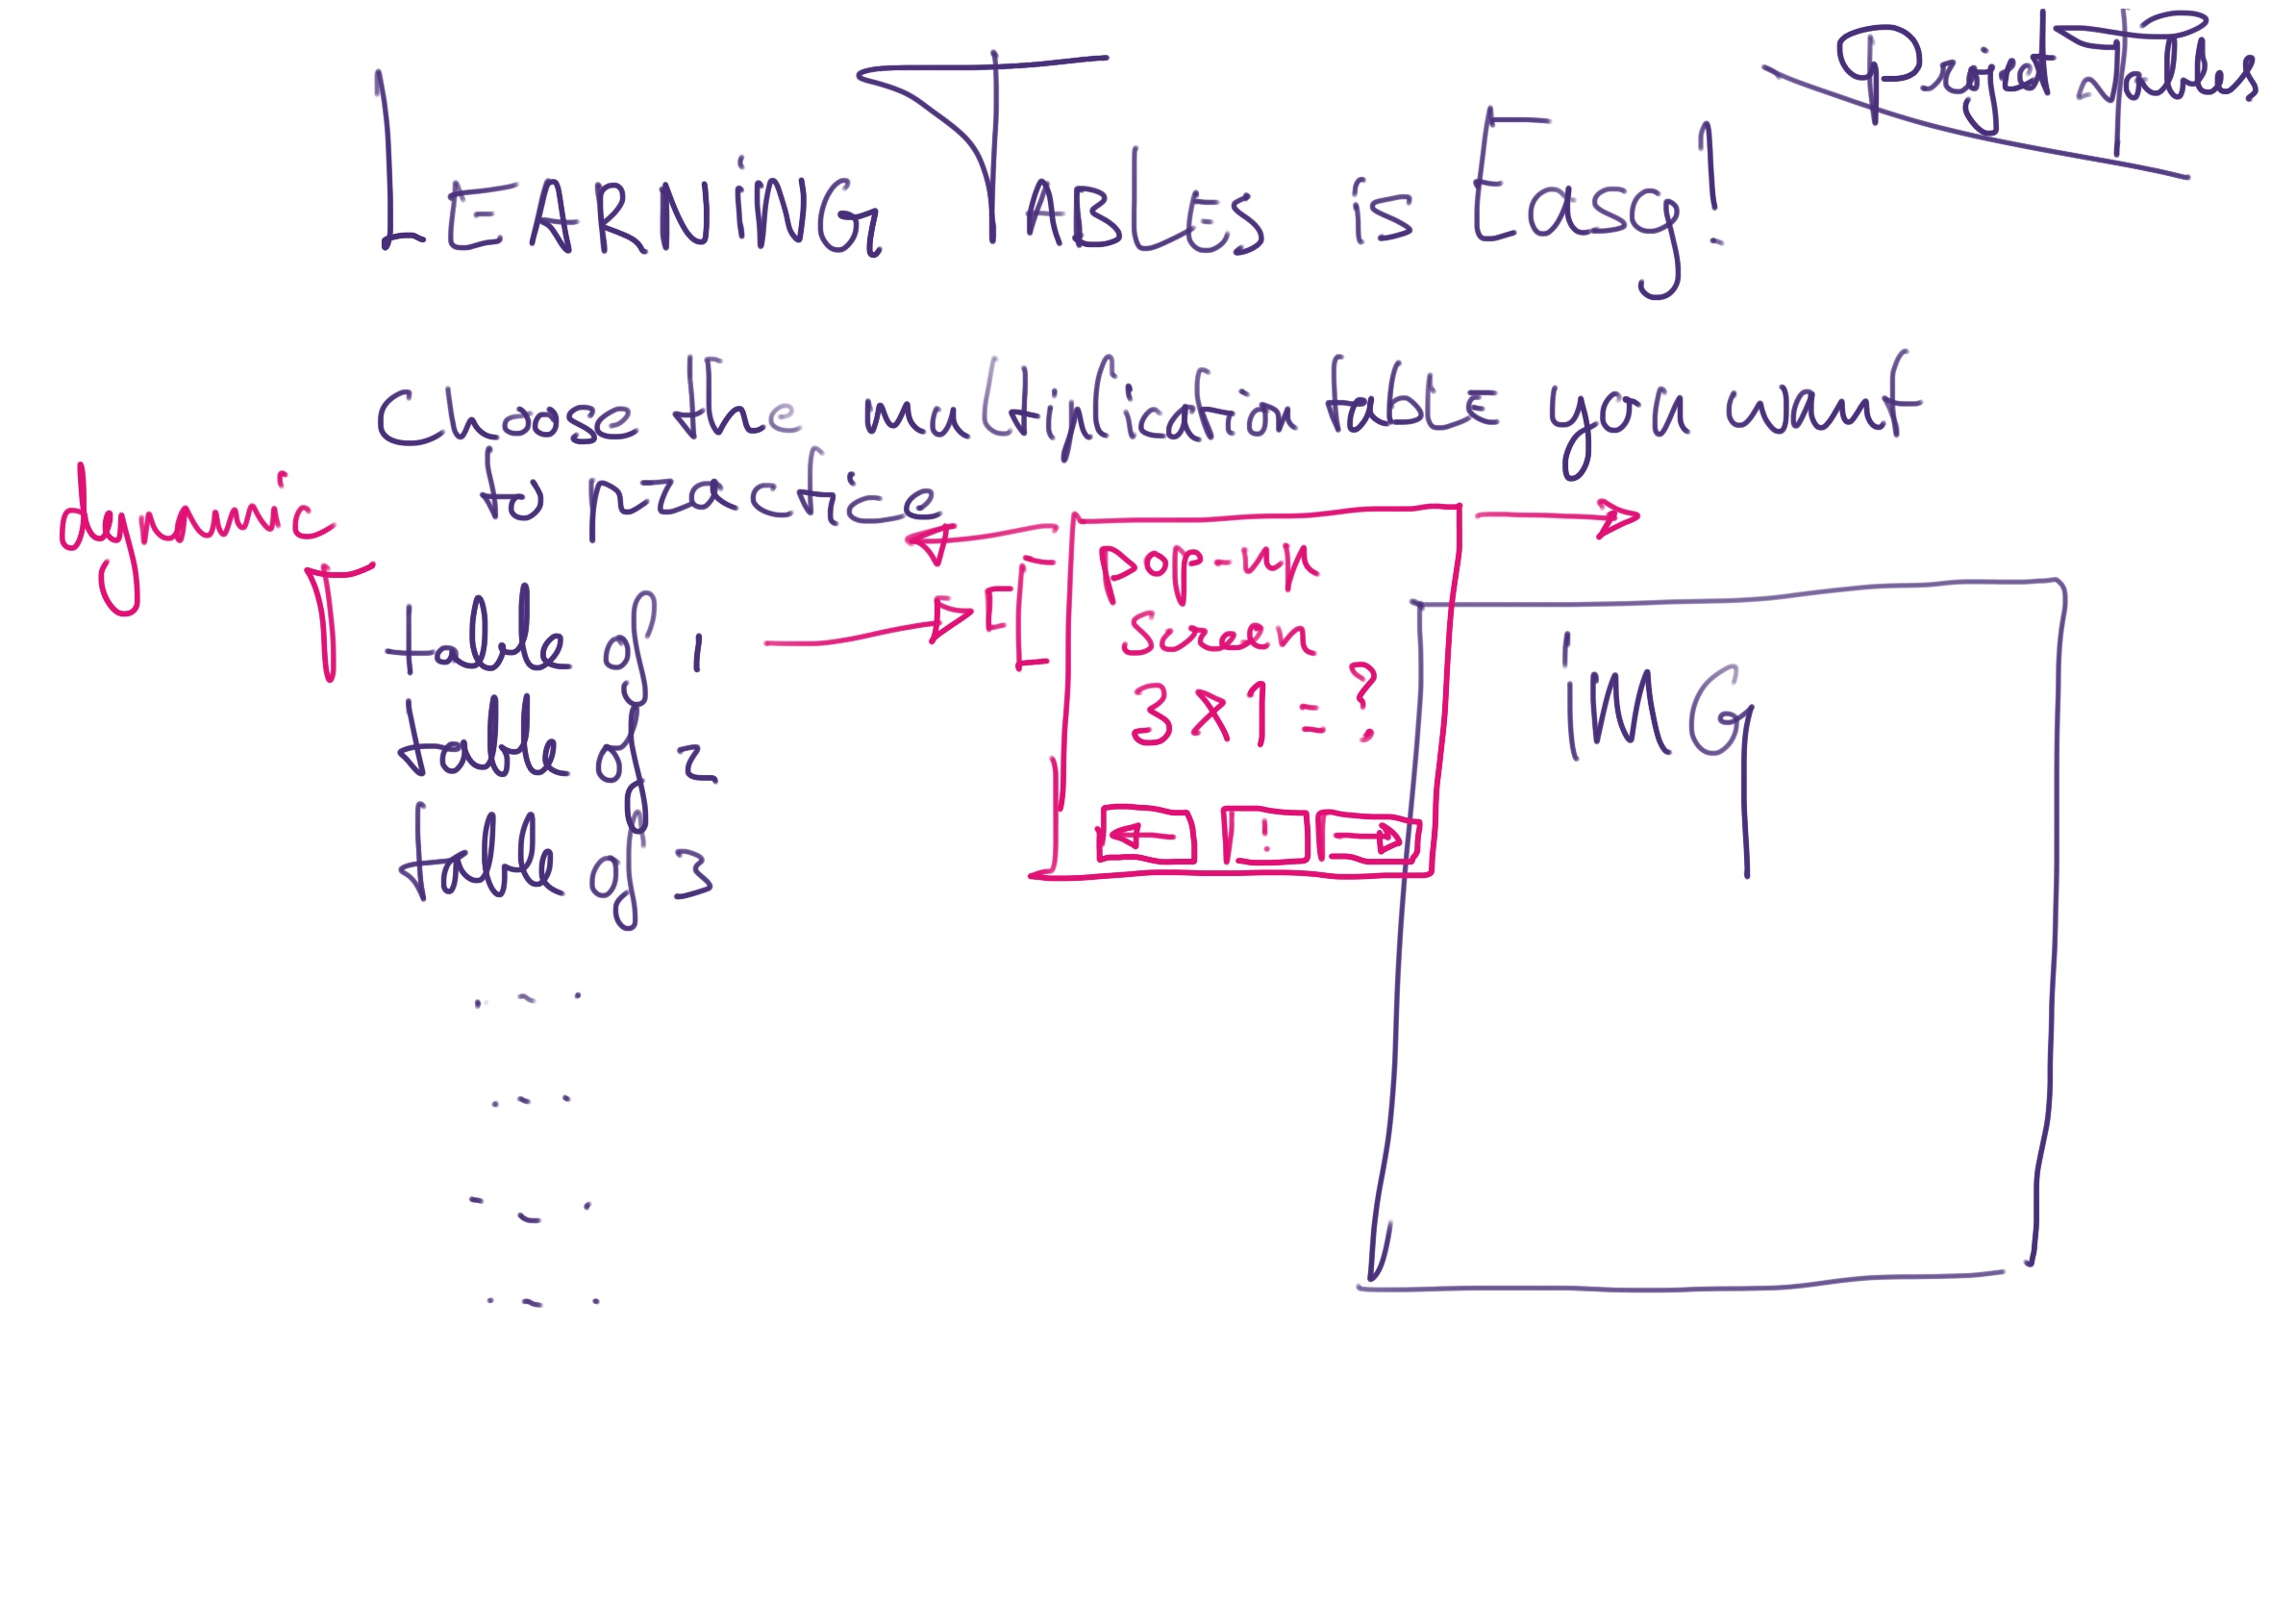 Project Tables
LEARNING TABLES is Easy!
Choose the multiplication table you want
to practice
dynamic
pop-up
screen
3 x 1 = ?
← ! →
table of 1
table of 2
table of 3
. - .
. - .
- - .
. - .
iMG